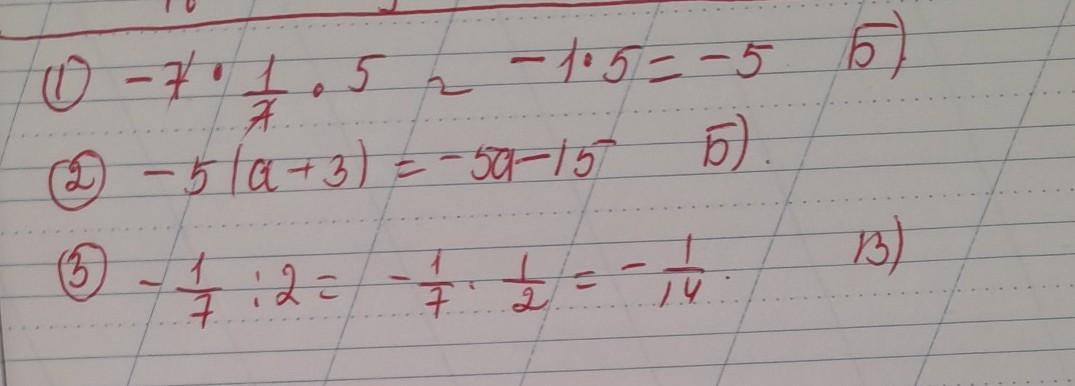 ① -7 · 1/7 · 5 ~ -1·5 = -5 Б)
② -5(a+3) = -5a-15 Б).
③ - 1/7 : 2 = - 1/7 · 1/2 = - 1/14. В)